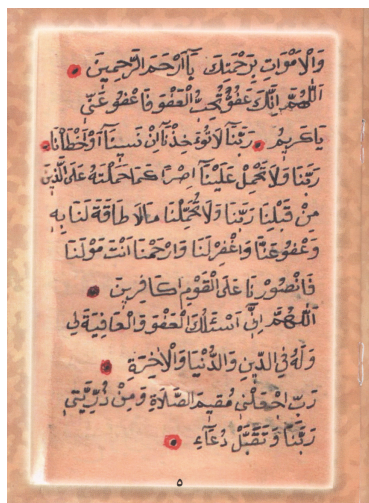 وَالْاَمْوَاتِ بِرَحْمَتِكَ يَآ اَرْحَمَ الرَّحِمِينَ
اَللّٰهُمَّ اِنَّكَ عَفُوٌّ تُحِبُّ الْعَفْوَ فَاعْفُوعَنِّي
يَاكَرِيمُ رَبَّنَا لَا تُوءَخِذْنَآ اِنْ نَسِينَآ اَوْ اَخْطَاْنَا
رَبَّنَا وَلَا تَحْمِلْ عَلَيْنَآ اِصْرًا كَمَا حَمَلْتَهُ عَلَى الَّذِينَ
مِنْ قَبْلِنَا رَبَّنَا وَلَا تُحَمِّلْنَا مَالَا طَاقَةَ لَنَا بِهِ
وَعْفُوعَنَّا وَاغْفِرْلَنَا وَارْحَمْنَا اَنْتَ مَوْلَنَا
فَانْصُورْنَا عَلَى الْقَوْمِ اكَافِرِينَ
اَللّٰهُمَّ اِنِّي اَسْئَلُكَ الْعَفْوَ وَالْعَافِيَةَ لِي
وَلَهُ فِي الدِّينِ وَالدُّنْيَا وَالْاٰخِرَةِ
رَبِّ اجْعَلْنِي مُقِيمَ الصَّلَاةِ وَمِنْ ذُرِّيَّتِي
رَبَّنَا وَتَقَبَّلْ دُعَآءِ
٥